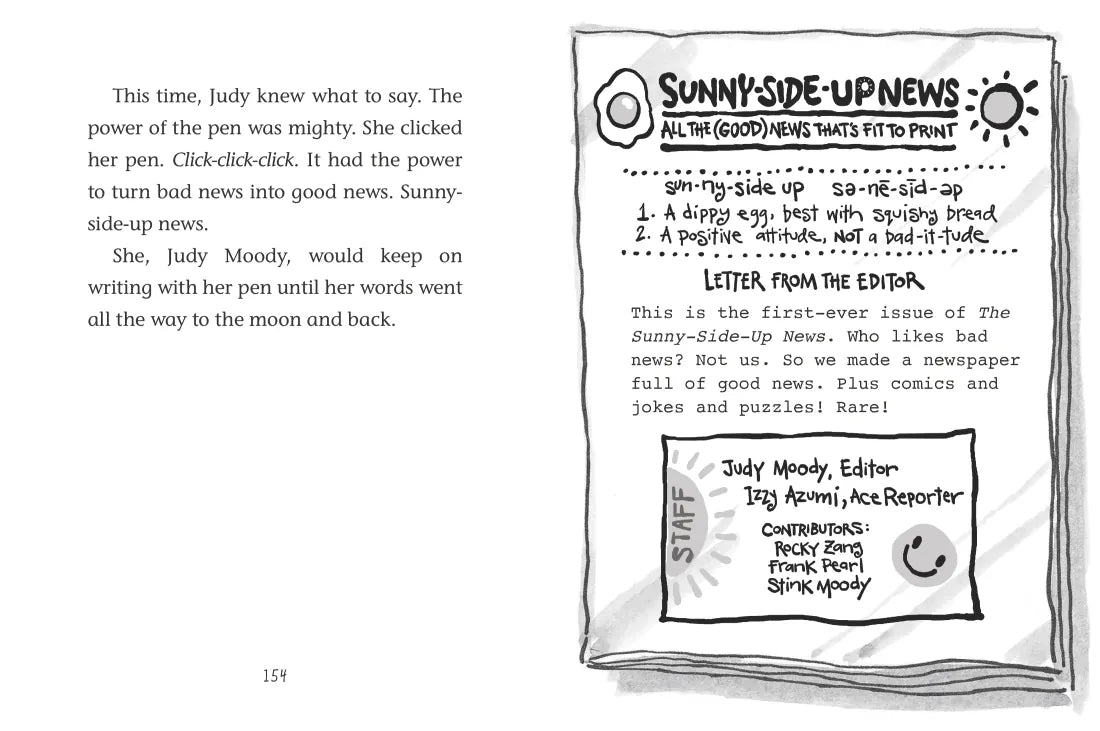 This time, Judy knew what to say. The
power of the pen was mighty. She clicked
her pen. Click-click-click. It had the power
to turn bad news into good news. Sunny-
side-up news.
She, Judy Moody, would keep on
writing with her pen until her words went
all the way to the moon and back.
154
SUNNY-SIDE-UP NEWS
ALL THE (GOOD) NEWS THAT'S FIT TO PRINT
sun-ny-side up sə-nē-sīd-əp
1. A dippy egg, best with squishy bread
2. A positive attitude, NOT a bad-it-tude
LETTER FROM THE EDITOR
This is the first-ever issue of The
Sunny-Side-Up News. Who likes bad
news? Not us. So we made a newspaper
full of good news. Plus comics and
jokes and puzzles! Rare!
STAFF
Judy Moody, Editor
Izzy Azumi, Ace Reporter
CONTRIBUTORS:
Rocky Zang
Frank Pearl
Stink Moody